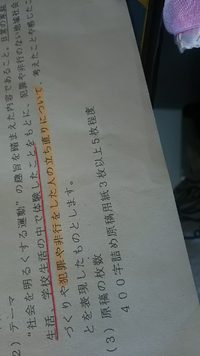 2）テーマ
“社会を明るくする運動”の趣旨を踏まえた内容であること。日常の家庭
生活、学校生活の中で体験したことをもとに、犯罪や非行のない地域社会
づくりや犯罪や非行をした人の立ち直りについて、考えたことや感じたこ
とを表現したものとします。
（3）原稿の枚数
４００字詰め原稿用紙３枚以上５枚程度